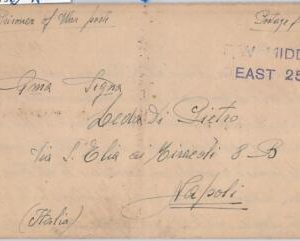 Prisoner of War post
Postage f
MIDD
EAST 25
Gma Signa
Leda di Pietro
Via S. Elia ai Miracoli 8 B
Napoli
(Italia)